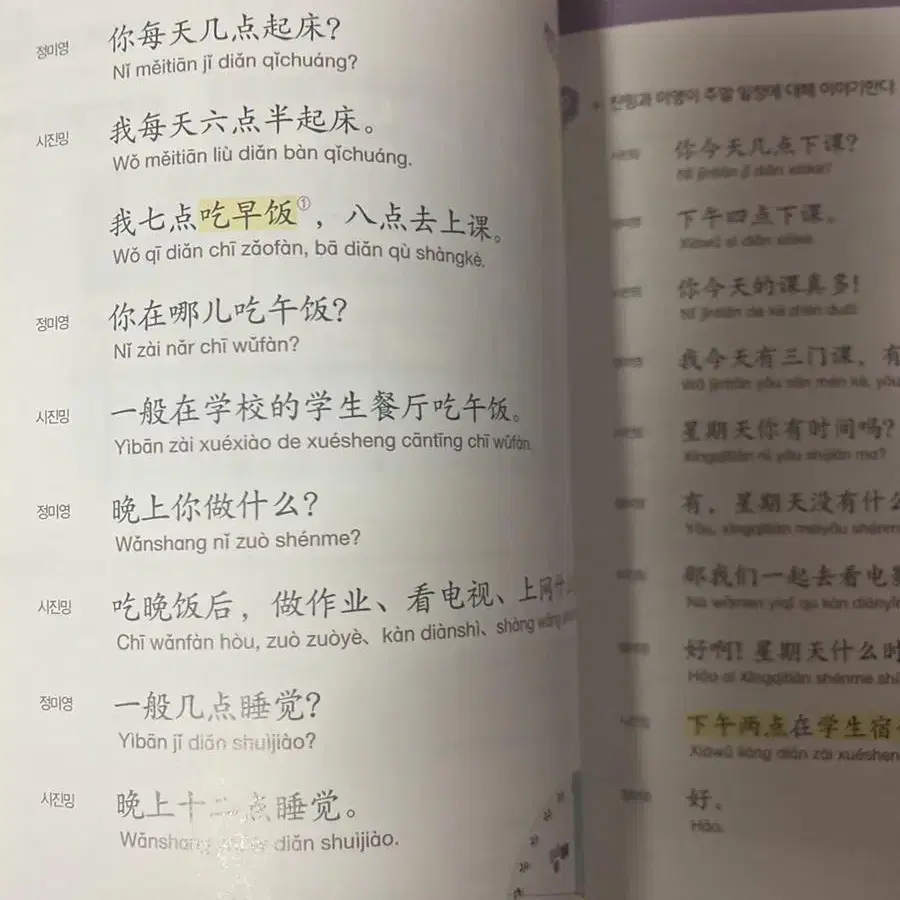 정미영
你每天几点起床?
Nǐ měitiān jǐ diǎn qǐchuáng?
시진밍
我每天六点半起床。
Wǒ měitiān liù diǎn bàn qǐchuáng.
我七点吃早饭①，八点去上课。
Wǒ qī diǎn chī zǎofàn, bā diǎn qù shàngkè.
정미영
你在哪儿吃午饭?
Nǐ zài nǎr chī wǔfàn?
시진밍
一般在学校的学生餐厅吃午饭。
Yìbān zài xuéxiào de xuésheng cāntīng chī wǔfàn.
정미영
晚上你做什么?
Wǎnshang nǐ zuò shénme?
시진밍
吃晚饭后，做作业、看电视、上网什
Chī wǎnfàn hòu, zuò zuòyè、kàn diànshì、shàng wǎng
정미영
一般几点睡觉?
Yìbān jǐ diǎn shuìjiào?
시진밍
晚上十二点睡觉。
Wǎnshang diǎn shuìjiào.
진밍과 미영이 주말 일정에 대해 이야기한다
你今天几点下课?
Nǐ jīntiān jǐ diǎn xiàkè?
下午四点下课。
Xiàwǔ sì diǎn xiàkè.
你今天的课真多!
Nǐ jīntiān de kè zhēn duō!
我今天有三门课，有
Wǒ jīntiān yǒu sān mén kè, yǒu
星期天你有时间吗?
Xīngqītiān nǐ yǒu shíjiān ma?
有，星期天没有什么
Yǒu, xīngqītiān méiyǒu shénm
那我们一起去看电影
Nà wǒmen yìqǐ qù kàn diànyǐn
好啊! 星期天什么时
Hǎo a! Xīngqītiān shénme shí
下午两点在学生宿
Xiàwǔ liǎng diǎn zài xuésheng
好。
Hǎo.